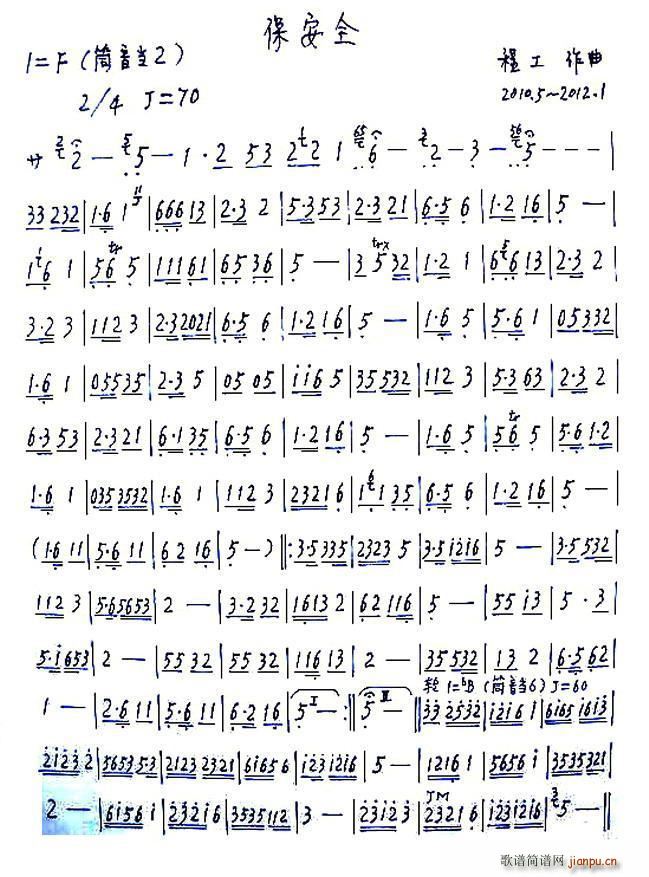 保安全
1=F (筒音当2)
程工 作曲
2/4 J=70
2010.5~2012.1
サ 2 — 5 — 1 · 2 53 2 2 1 6 — 2 — 3 — 5 — — — |
33 232 | 1·6 1 | 666 13 | 2·3 2 | 5·3 53 | 2·3 21 | 6·5 6 | 1·2 16 | 5 — |
1 6 1 | 56 5 | 11161 | 6536 | 5 — | 3 532 | 1·2 1 | 6 6 13 | 2·3 2 |
3·2 3 | 112 3 | 2·32021 | 6·5 6 | 1·216 | 5 — | 1·6 5 | 5·6 1 | 053332 |
1·6 1 | 05535 | 2·3 5 | 05 05 | ii6 5 | 35532 | 112 3 | 5·3 63 | 2·3 2 |
6·3 53 | 2·3 21 | 6·1 35 | 6·5 6 | 1·2 16 | 5 — | 1·6 5 | 56 5 | 5·6 1·2 |
1·6 1 | 035 3532 | 1·6 1 | 112 3 | 2321 6 | 1 1 35 | 6·5 6 | 1·2 16 | 5 — |
(1·6 11 | 5·6 11 | 6 2 16 | 5 —) ‖: 3·5335 | 2323 5 | 3·5 i2i6 | 5 — | 3·5 532 |
112 3 | 5·65653 | 2 — | 3·2 32 | 1613 2 | 62 116 | 5 — | 55 i3 | 5 · 3 |
5·i653 | 2 — | 55 32 | 55 32 | 11613 | 2 — | 35532 | 13 2 | 6·5 62 |
轮 1=bB (筒音当6) J=60
1 — | 2·6 11 | 5·6 11 | 6·2 16 | 5 I — :‖ 5 II — ‖ 33 2532 | i2i6 i | 6i65 i6i3 |
2i23 2 | 5653 53 | 2123 2321 | 6i65 6 | i23 i2i6 | 5 — | 1216 1 | 5656 i | 3535321 |
2 — | 6i56 i | 232i6 | 3535112 | 3 — | 23i23 | 2321 6 | i23i2i6 | 5 — ‖
歌谱简谱网 jianpu.cn